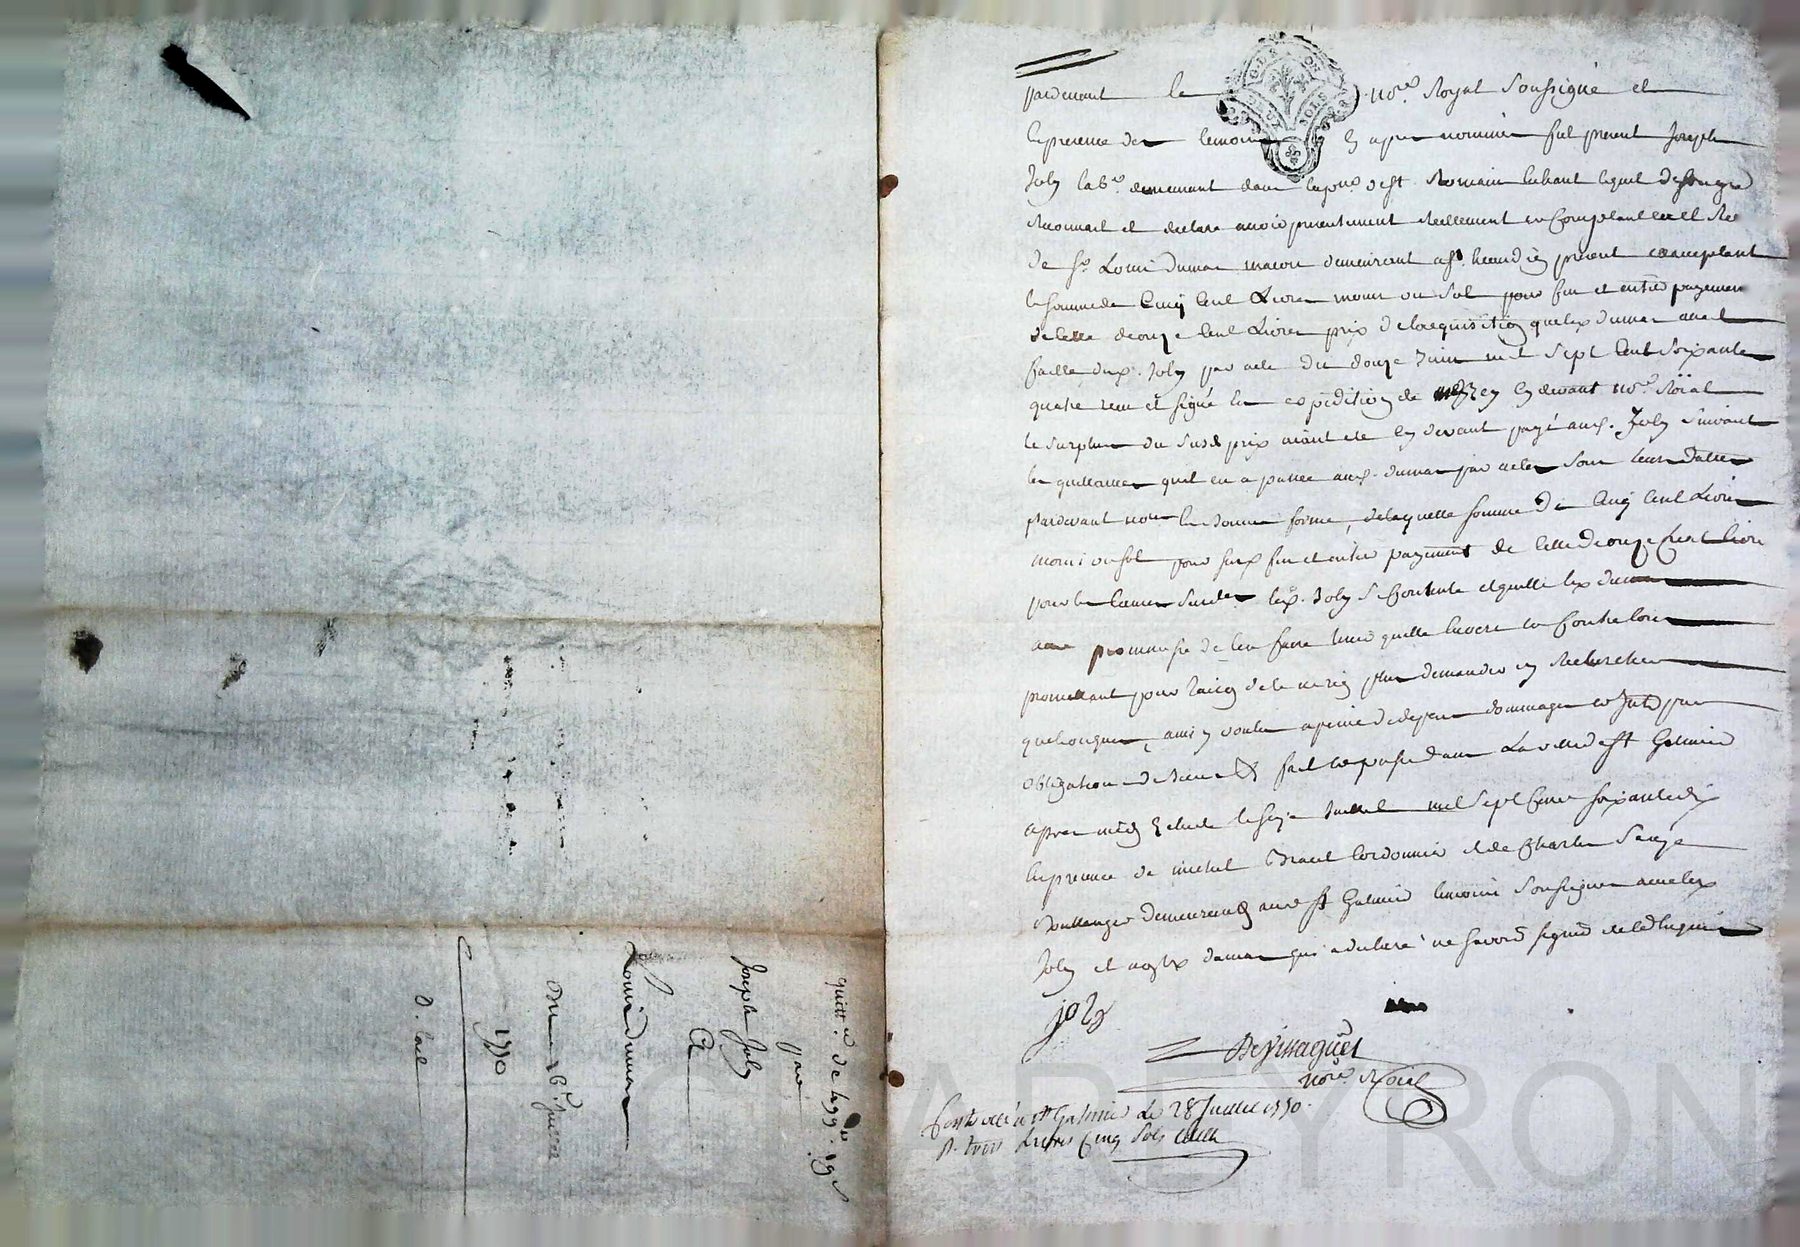 pardevant le nore. Royal Soussigné et
En presence des temoins Cy apres nommés fut present Joseph
Joly lab.r demeurant dans la par.e de st. Romain lequel de son gré
Reconnait et declare avoir presentement Reellement en Comptant
de Sr. Louis dumas macon demeurant a St. present acceptant
la somme de Cinq Cent Livres moins un Sol pour fin et entier payement
de Celle de onze Cent Livres prix de la equisition que led dumas avoit
faitte dud. Joly par acte du douze Juin mil Sept Cent Soixante
quatre receu et Signé en expedition de Cy devant nore. Roïal
le Surplus du Susd prix aiant ete Cy devant payé aud. Joly Suivant
les quittances quil en a passées aud. dumas par actes Sous leurs dattes
pardevant nous en bonnes formes, de laquelle somme de Cinq Cent Livres
moins un Sol pour fin et entier payement de Celle de onze Cent livres
pour les Causes Susd. led. Joly Se Contente et quitte led dumas
avec promesse de l'en faire tenir quitte envers et Contre tous
promettant pour raison de ce ne rien plus demander ny Rechercher
quelconques, ainsy voulu a peine de depens dommages et
obligation de biens &. fait et passé dans La ville de St Galmier
apres midy Etude le Seize Juillet mil Sept Cent Soixante dix
En presence de michel Cordonnier et de Charles
Boullanger demeurants aud St Galmier temoins Soussignés avec led
Joly et non led dumas qui a declaré ne Savoir Signer de ce Enquis
joly
Devinaguet
nore. Roïal
Controllé a St Galmier Le 28 Juillet 1770.
R. trois Livres Cinq Sols
quitt.ce de
par
Joseph Joly
A
Louis dumas
Du Juillet
1770